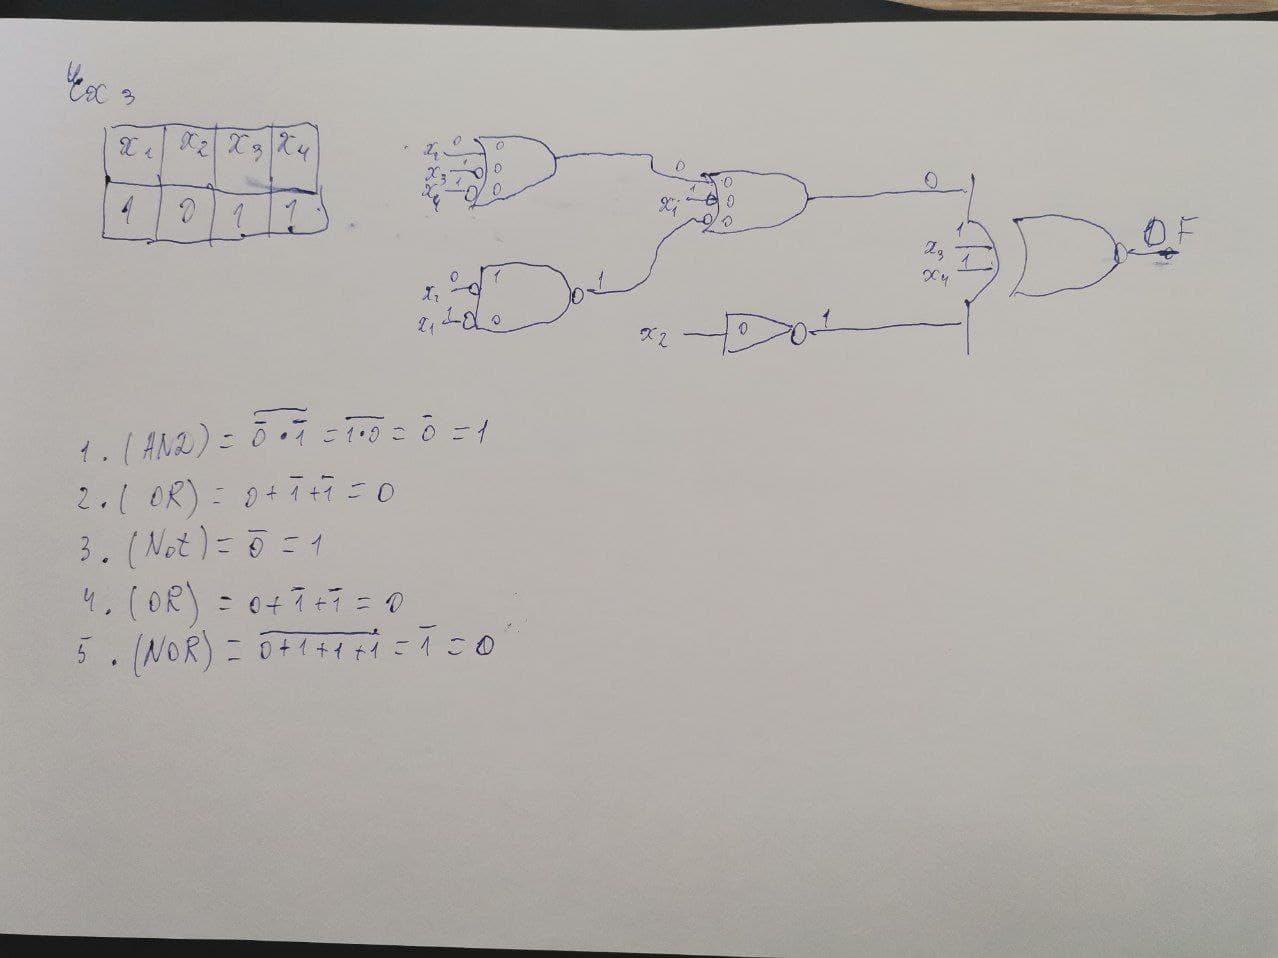 Ex 3
x₁ x₂ x₃ x₄
1 0 1 1
x₂ 0 0
x₃ 1 0
x₄ 1 0
0 0
x₁ 1 0
0
0
x₂ 0 1
x₁ 1 0
1
x₃ 1
x₄ 1
0 F
x₂ 0 1
1. (AND) = \overline{\bar{0} • \bar{1}} = \overline{1•0} = \bar{0} = 1
2. ( OR) = 0 + \bar{1} + \bar{1} = 0
3. (Not) = \bar{0} = 1
4. (OR) = 0 + \bar{1} + \bar{1} = 0
5. (NOR) = \overline{0+1+1+1} = \bar{1} = 0